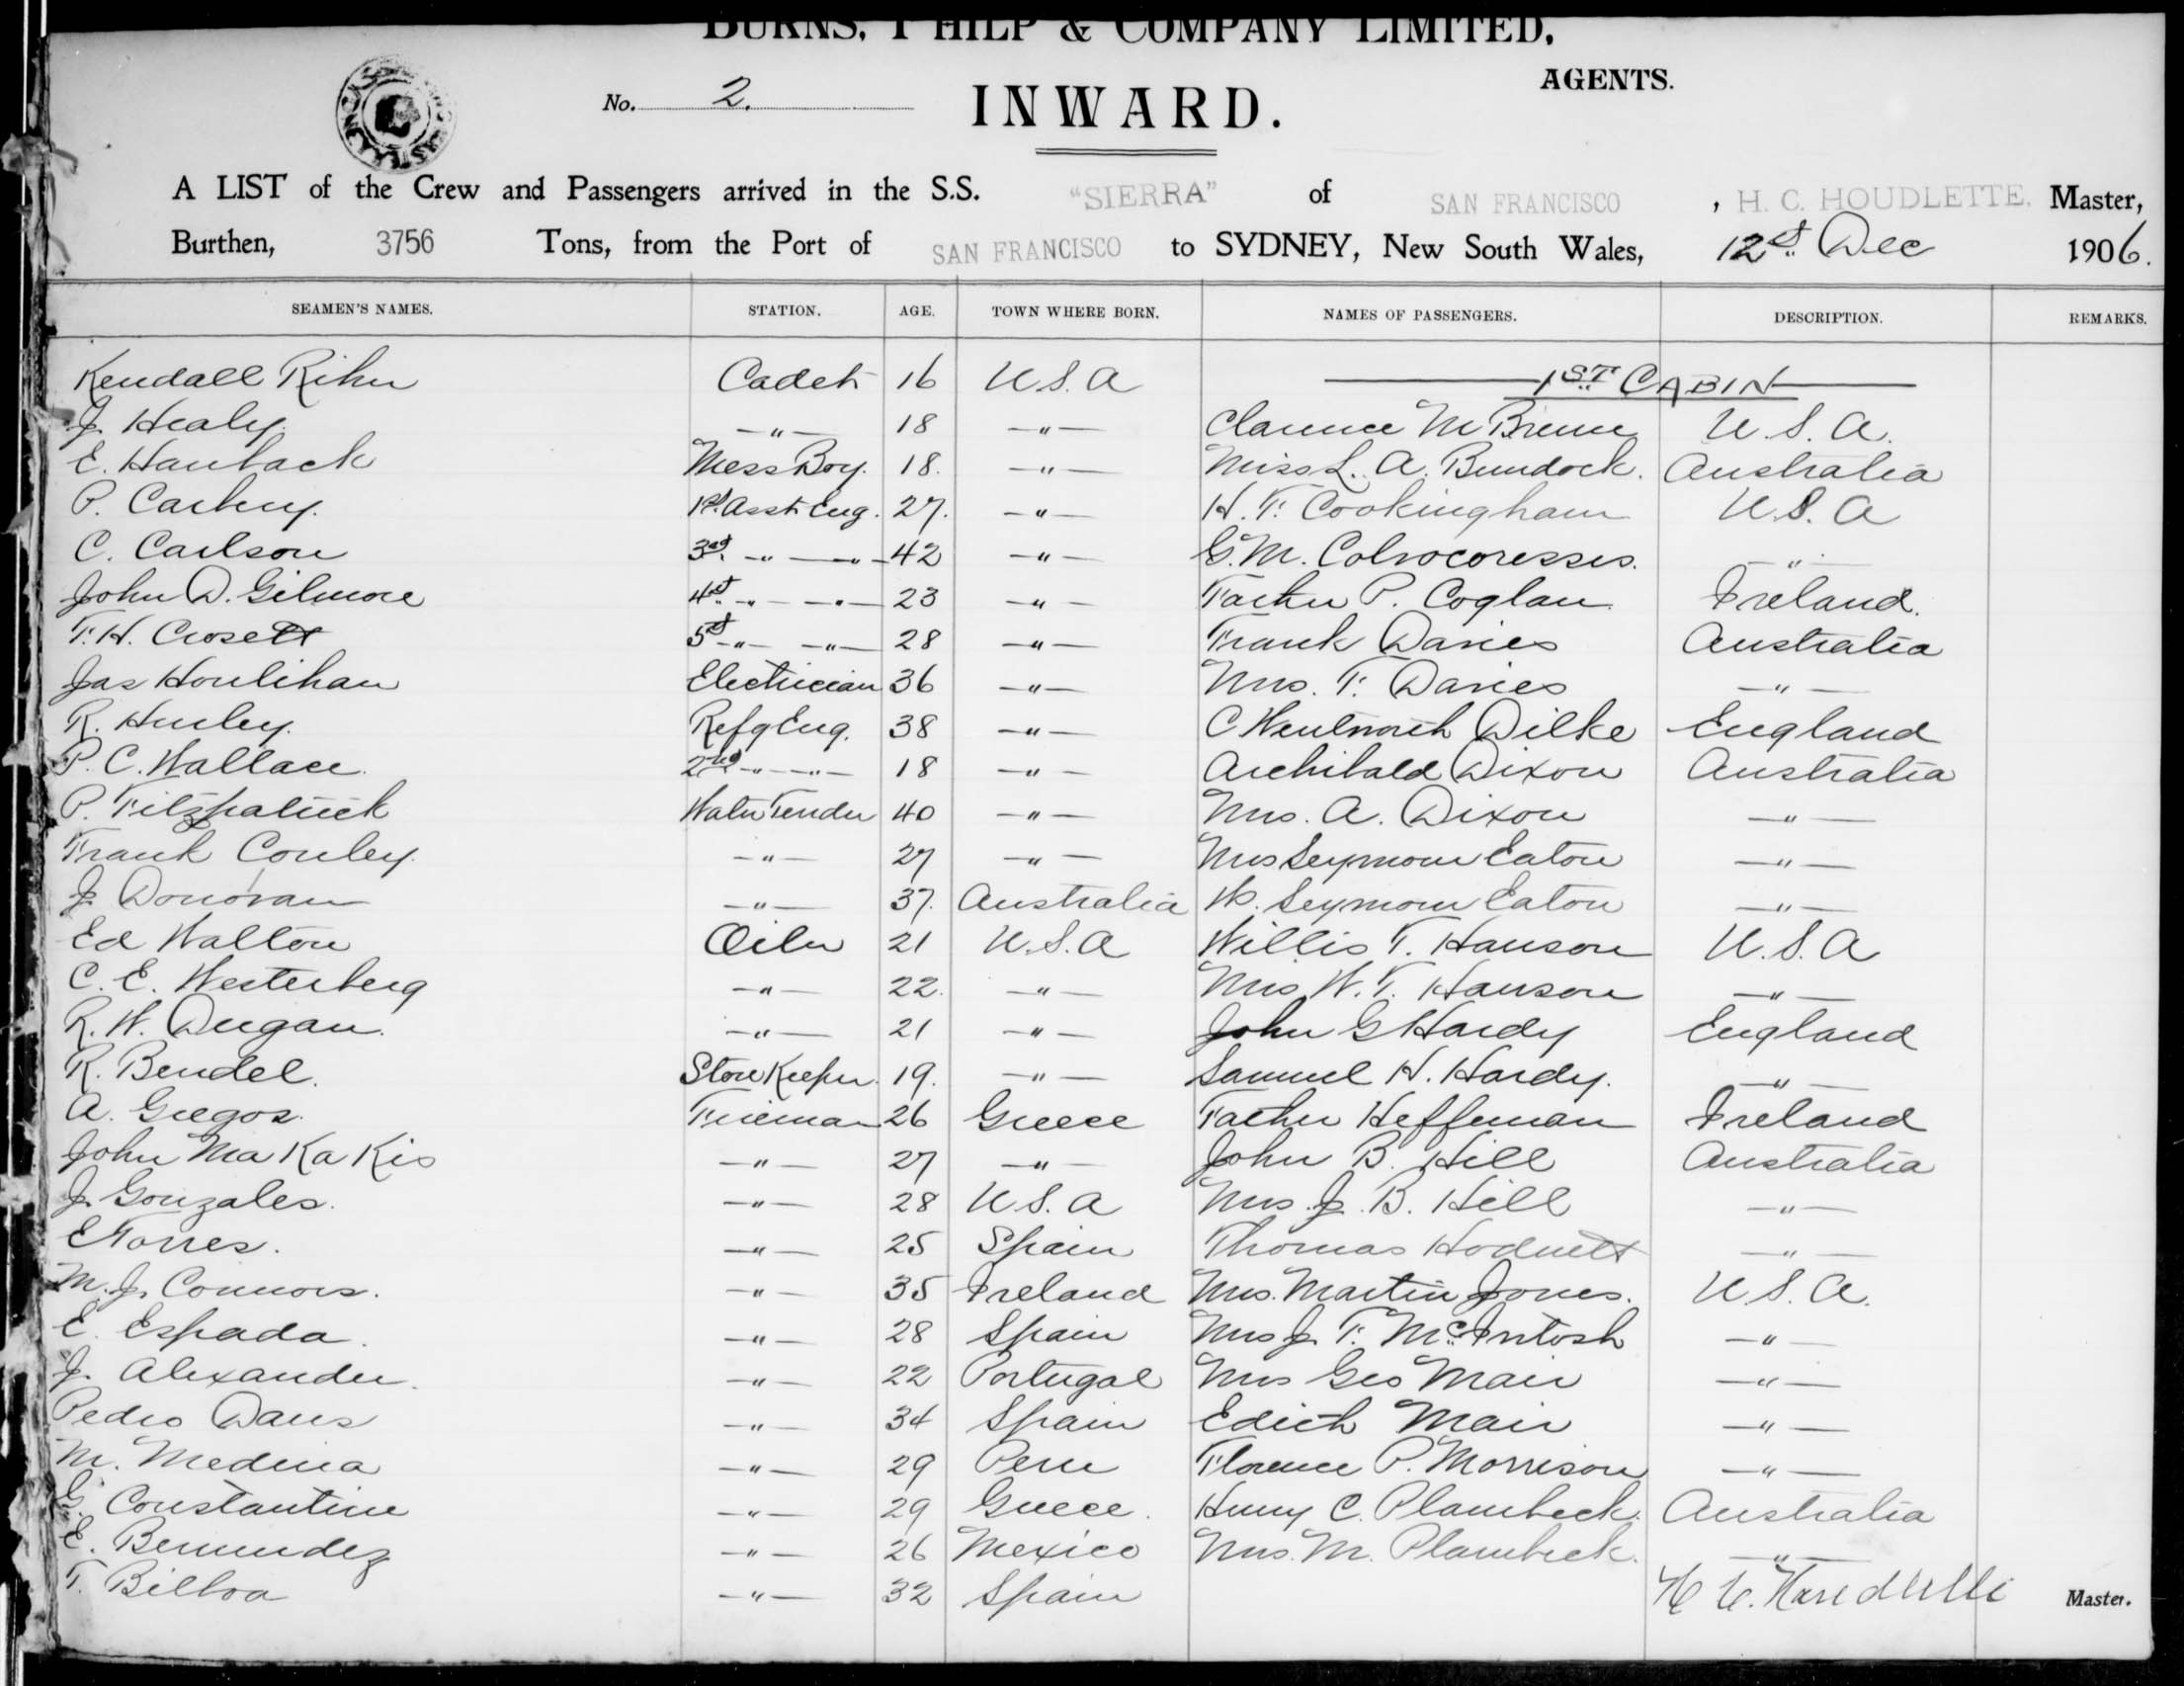 BURNS, PHILP & COMPANY LIMITED,
AGENTS.
No. 2.
INWARD.
A LIST of the Crew and Passengers arrived in the S.S. "SIERRA" of SAN FRANCISCO, H. C. HOUDLETTE. Master,
Burthen, 3756 Tons, from the Port of SAN FRANCISCO to SYDNEY, New South Wales, 12th Dec 1906.
SEAMEN'S NAMES. STATION. AGE. TOWN WHERE BORN. NAMES OF PASSENGERS. DESCRIPTION. REMARKS.
Kendall Cadet 16 U.S.A 1ST CABIN
J. Healy. —"— 18 —"— Clarence M U.S.A.
E. Hauback Mess Boy. 18. —"— Miss L. A. Bundock. Australia
P. 1st Asst Eng. 27. —"— H. F. Cookingham U.S.A
C. Carlson 3rd —"— —"— 42 —"— G. M. Colvocoresses. —"—
John D. Gilmore 4th —"— —"— 23 —"— Father P. Coglan. Ireland.
F. H. Crosett 5th —"— —"— 28 —"— Frank Davies Australia
Jas Houlihan Electrician 36 —"— Mrs. F. Davies —"—
R. Hurley. Refg Eng. 38 —"— C Wentworth Dilke England
P. C. Wallace. 2nd —"— —"— 18 —"— Archibald Dixon Australia
P. Fitzpatrick Water Tender 40 —"— Mrs. A. Dixon —"—
Frank Conley. —"— 27 —"— Mrs Seymour Eaton —"—
J. Donovan —"— 37. Australia W. Seymour Eaton —"—
Ed Walton Oiler 21 U.S.A Willis T. Hanson U.S.A
C. E. Westerberg —"— 22. —"— Mrs W. T. Hanson —"—
R. W. Dugan. —"— 21 —"— John G Hardy England
R. Bendel. Store Keeper. 19. —"— Samuel H. Hardy. —"—
A. Gregos. Fireman 26 Greece Father Heffernan Ireland
John Ma Ka Kis —"— 27 —"— John B. Hill Australia
J. Gonzales. —"— 28 U.S.A Mrs. J. B. Hill —"—
E Torres. —"— 25 Spain Thomas Hodnett —"—
M. J. Connors. —"— 35 Ireland Mrs. Martin Jones. U.S.A.
E. Espada. —"— 28 Spain Mrs J. F. McIntosh —"—
J. Alexander. —"— 22 Portugal Mrs Geo Mair —"—
Pedro —"— 34 Spain Edith Mair —"—
M. Medina —"— 29 Peru Florence P. Morrison —"—
G. Constantine —"— 29 Greece. Henry C. Plambeck. Australia
E. Bermudez —"— 26 Mexico Mrs. M. Plambeck. —"—
T. Bilboa —"— 32 Spain
H C. Houdlette Master.